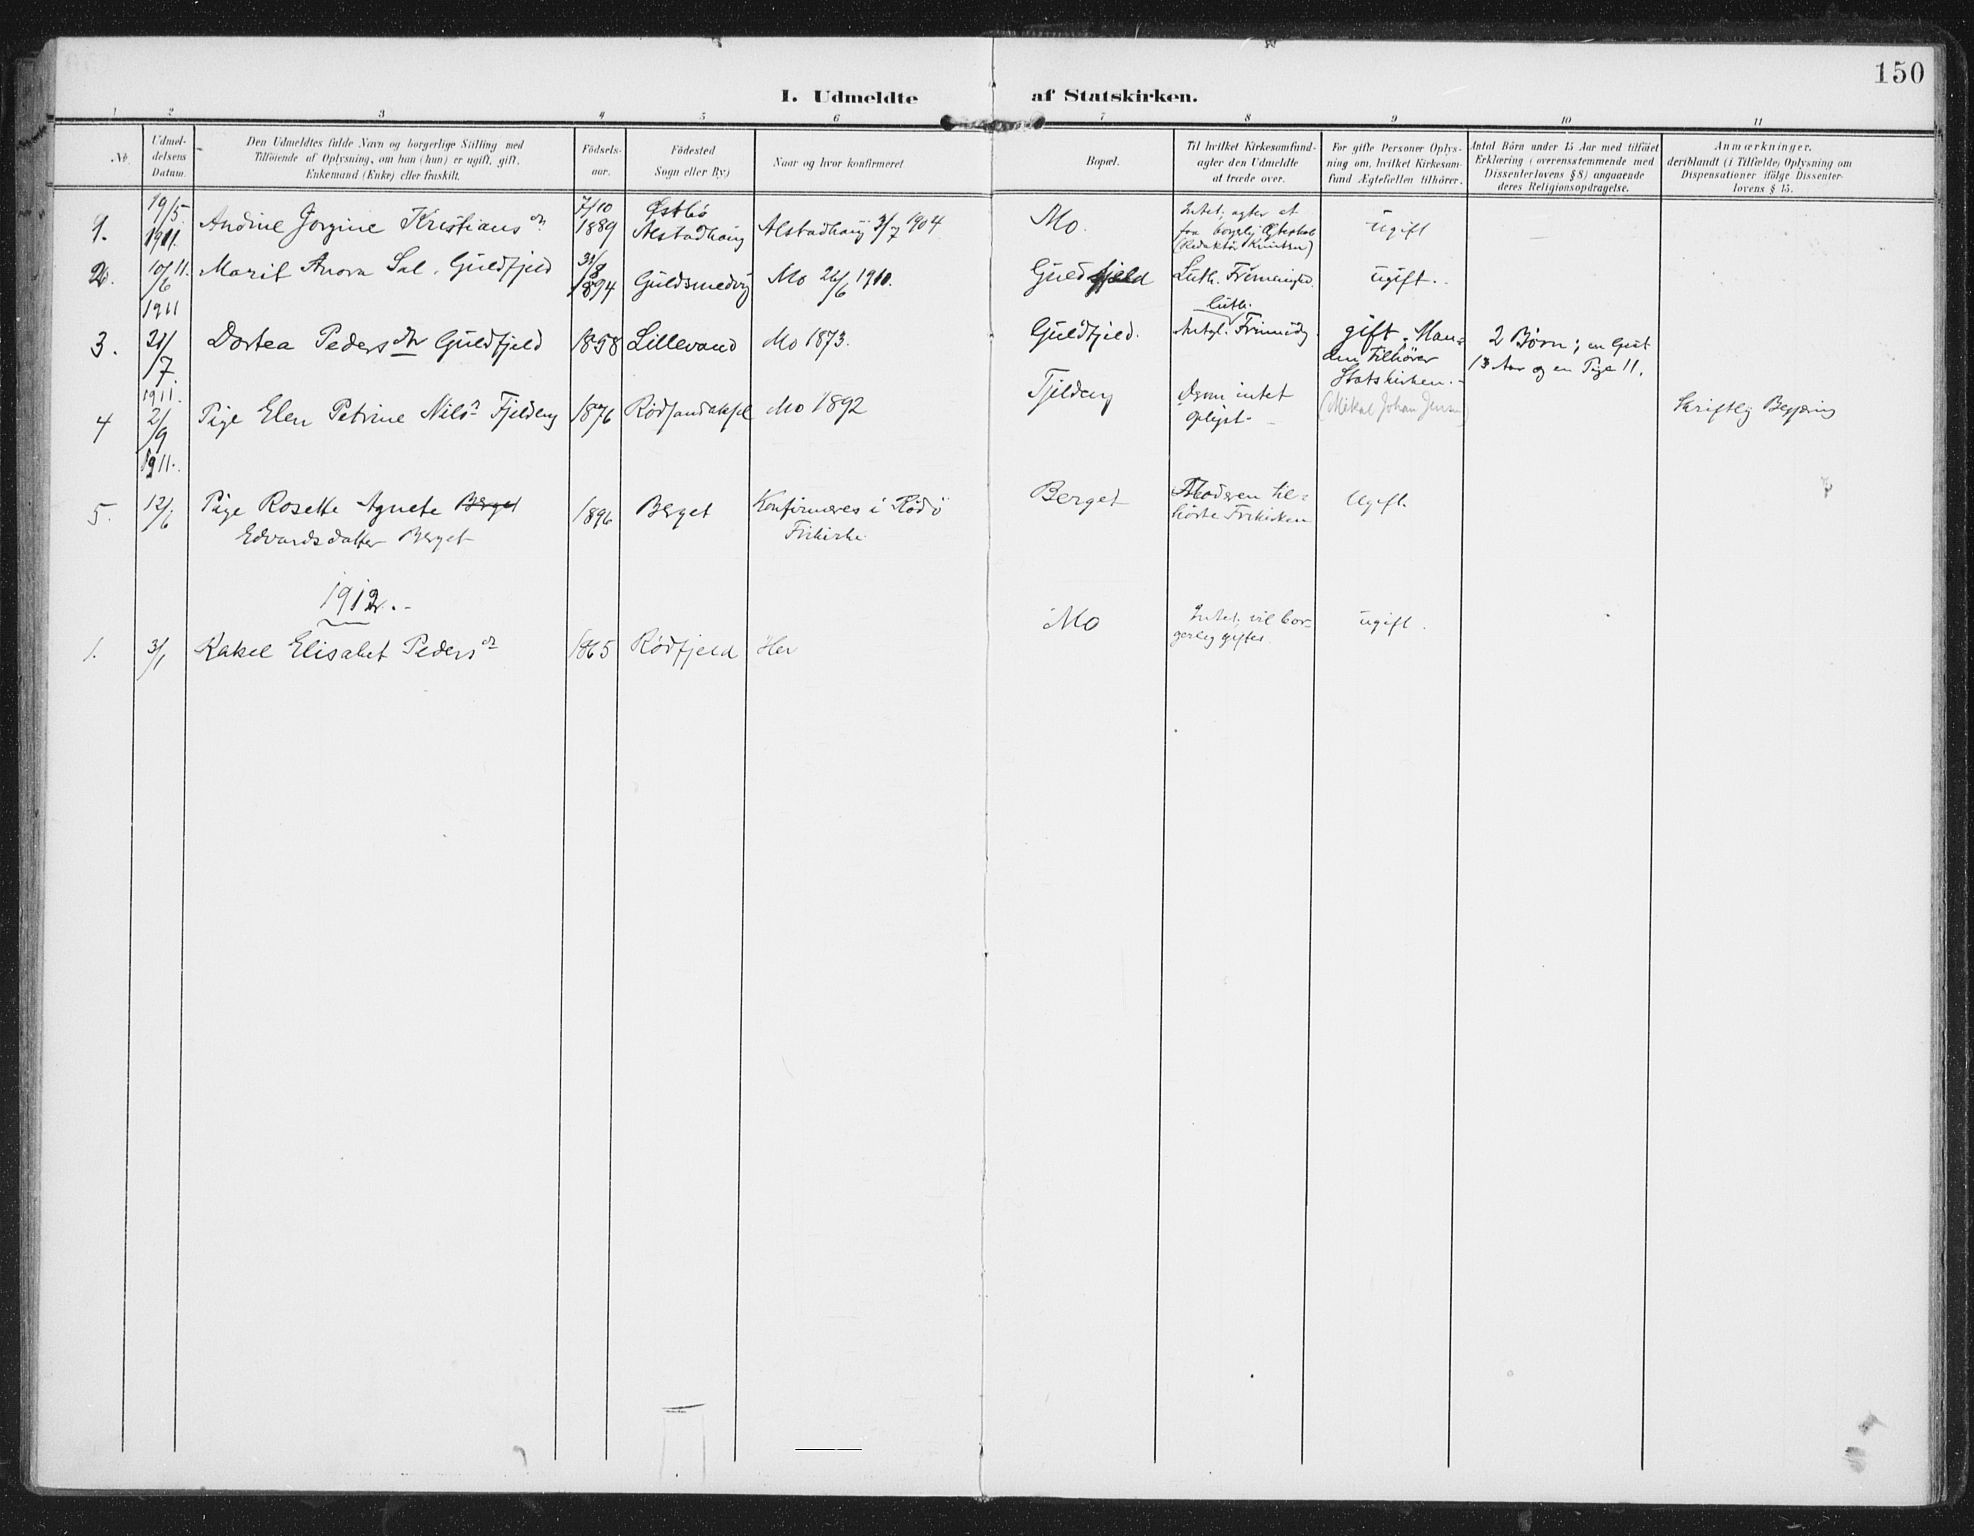 150
I. Udmeldte af Statskirken.
1 2 3 4 5 6 7 8 9 10 11
No.
Udmel-
delsens
Datum.
Den Udmeldtes fulde Navn og borgerlige Stilling med
Tilföiende af Oplysning, om han (hun) er ugift, gift,
Enkemand (Enke) eller fraskilt.
Födsels-
aar.
Födested
Sogn eller By)
Naar og hvor konfirmeret
Bopæl.
Til hvilket Kirkesamfund-
agter den Udmeldte
at træde over.
For gifte Personer Oplys-
ning om, hvilket Kirkesam-
fund Ægtefællen tilhörer.
Antal Börn under 15 Aar med tilföiet
Erklæring (overensstemmende med
Dissenterlovens § 8) angaaende
deres Religionsopdragelse.
Anmærkninger,
deriblandt (i Tilfælde) Oplysning om
Dispensationer ifölge Dissenter-
lovens § 15.
1. 19/5 1911. Andine Jorgine Kristiansdtr 7/10 1889 Østbö Alstadhaug Alstadhaug 3/7 1904. Mo. Intet; agter at faa borgerlig (Redaktör Knutsen) ugift
2. 10/6 1911 Marit Anora Sal. Guldfjeld 1894 Guldsmedvig Mo 26/6 1910. Guldfjeld Luth. Frimenighed. ugift.
3. 21/7 1911. Dortea Pedersdtr Guldfjeld 1858 Lillevand Mo 1873. Guldfjeld. luth. Frimenigh. gift. Man-
den tilhörer
Statskirken.
(Mikal Johan Jensen)
2 Börn; en Gut
13 Aar og en Pige 11.
4 2/9 1911. Pige Elen Petrine Nilsdtr Fjeldeng 1876 Mo 1892 Derom intet
oplyst Skriftlig Begjæring
5. 12/6 Pige Rosette Agnete Berget
Edvardsdatter Berget 1896 Berget Konfirmeres i Rödö
Frikirke Berget Moderen til-
hörte Frikirken Ugift.
1912.
1. 3/1 Rakel Elisabet Pedersdtr 1865 Rödfjeld Her Mo Intet; vil bor-
gerlig giftes. ugift.